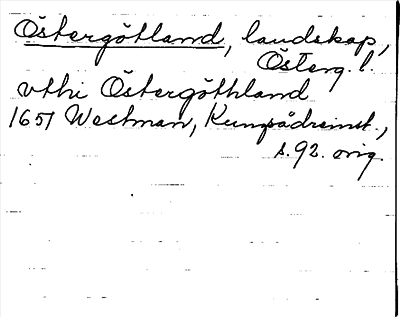 Östergötland, landskap,
Österg. l.
vthi Östergöthland
1651 Westman,
s. 92. orig.